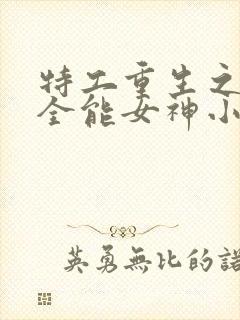 特工重生之
全能女神小
英勇無比的諾